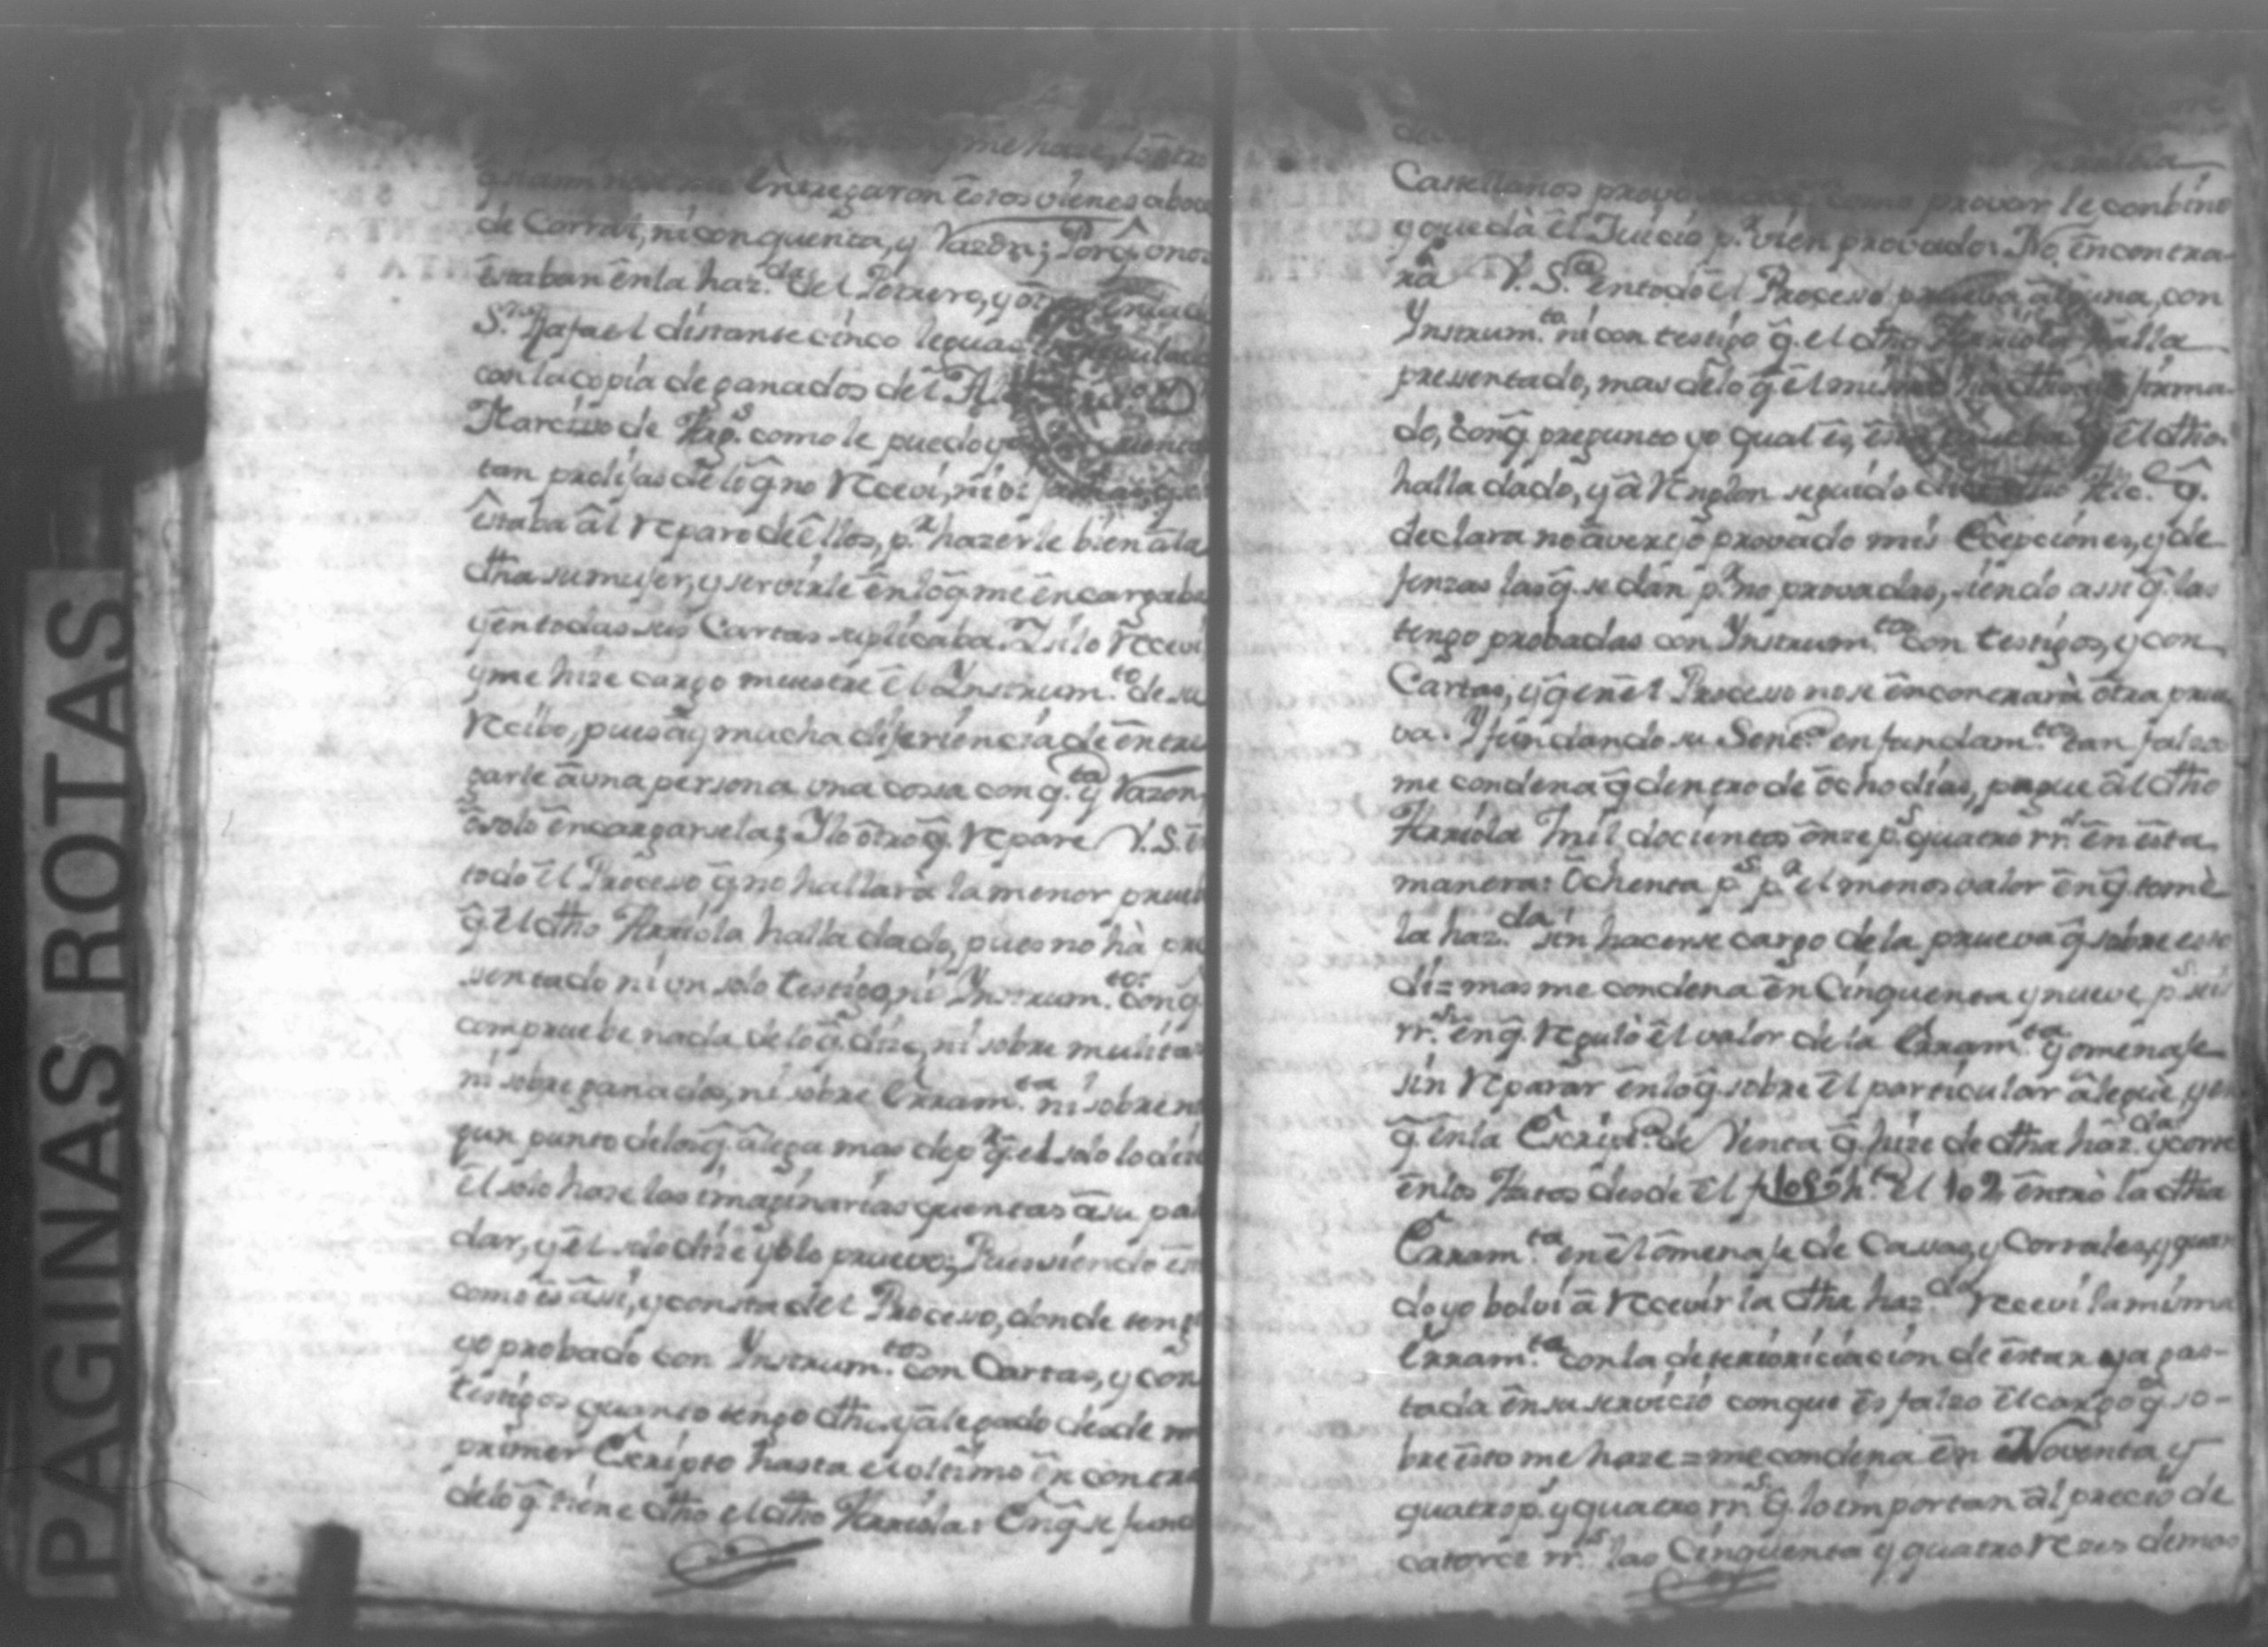 PAGINAS ROTAS
y me haze, lo otro
entregaron estos vienes abou
de Corral, ni con quenta, y Razon; Porq̃ onos
estaban en la haz.da del Potrero, y otros
S.n Rafael distante cinco leguas
con la copia de ganados del
Narciso de como le puedo yo
tan prolijas de lo q̃ no receví, ni ví
estaba al reparo de ellos, p.r hazerle bien a la
dha su muger, y servirle en lo q̃ me encargaba
y en todas sus Cartas suplicaba. Y si lo receví
y me hize cargo muestre el Ynstrum.to de su
recibo, pues ay mucha diferiencia de entre
garle a una persona una cossa con q.ta y Razon,
o solo encargarsela; Y lo otro q̃ repare V.S.
todo el Proceso q̃ no hallarà la menor prueb
q̃ el dho Arriola halla dado, pues no hà pre
sentado ni un solo testigo, ni Ynstrum.tos con q̃
compruebe nada de lo q̃ dize, ni sobre mulita
ni sobre ganados, ni sobre Erram.ta ni sobre ni
gun punto de los q̃ alega mas de p.r q̃ el solo lo dize
El solo haze las imaginarias quentas a su pala
dar, y el solo dize yo lo pruevo; Pues siendo est
como es assi, y consta del Proceso, donde teng
yo probado con Ynstrum.tos con Cartas, y con
testigos quanto tengo dho. y alegado desde mi
primer Escripto hasta el ultimo en contra
de lo q̃ tiene dho el dho Arriola: En q̃ se funda
Castellanos provar le conbino
y quedà el Juicio p.r vien provado. No encontra
rà V.S.a en todo el Proceso prueba alguna, con
Ynstrum.to ni con testigo q̃. el dho Arriola halla
presentado, mas de lo q̃ el mismo ha dho y firma
do, conq̃ pregunto yo qual es, esta prueba q̃ el dho.
halla dado, y a renglon seguido q̃.
declara no aver yo provado mis Ecepciones, y de
fenzas las q̃. se dàn p.r no provadas, siendo assi q̃. las
tengo probadas con Ynstrum.tos con testigos, y con
Cartas, y q̃ en el Proceso no se encontrarà otra prue
va. Y fundando su Sent.a en fundam.tos tan falsos
me condena q̃ dentro de ocho dias, pague al dho
Arriola mil docientos onze p.s quatro rr.s en esta
manera: Ochenta p.s p.r el menos valor en q̃ tomè
la haz.da sin hacerse cargo de la prueva q̃ sobre esto
dí = mas me condena en Cinquenta y nueve p.s seis
rr.s en q̃. regulò el valor de la Erram.ta y omenaje
sin reparar en lo q̃ sobre el particular aleguè, y es
q̃ en la Escript.a de Venta q̃ hize de dha haz.da y corre
en los Autos desde el f. 108 h.ta el 102 entrò la dha
Erram.ta en el omenaje de Casas, y Corrales, y quan
do yo bolví a recevir la dha haz.da receví la misma
Erram.ta con la deterioriciacion de estar ya gas-
tada en su servicio conque es falso el cargo q̃ so-
bre esto me haze = me condena en Noventa y
quatro p.s y quatro rr.s q̃ lo importan al precio de
catorce rr.s las Cinquenta y quatro rezes demas